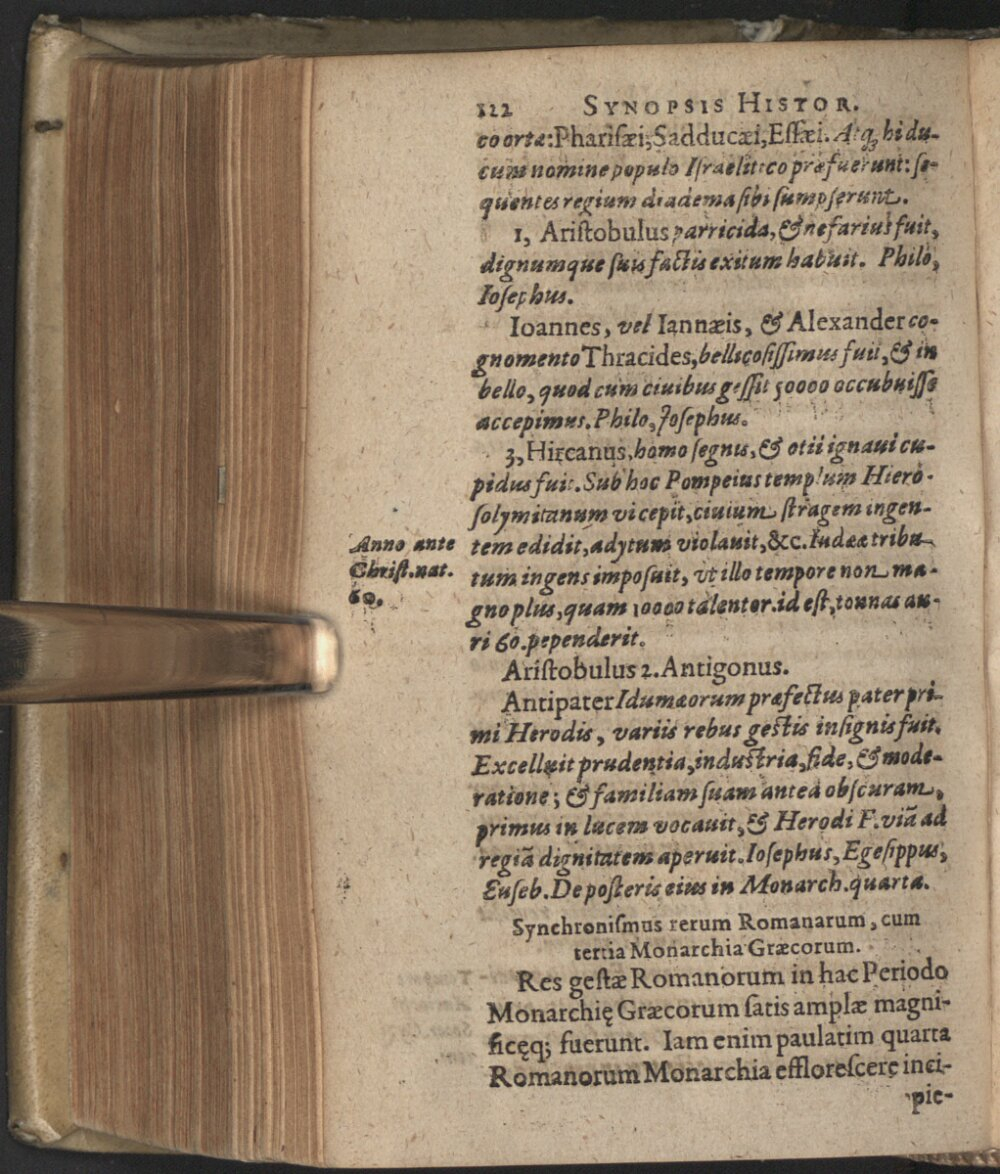 122 SYNOPSIS HISTOR.
coortæ: Phariſæi, Sadducæi, Eſſæi. Atq; hi du-
cum nomine populo Iſraelitico præfuerunt: ſe-
quentes regium diadema ſibi ſumpſerunt.
1, Ariſtobulus parricida, & nefarius fuit,
dignumque ſuis factis exitum habuit. Philo,
Ioſephus.
Ioannes, vel Iannæis, & Alexander co-
gnomento Thracides, bellicoſiſſimus fuit, & in
bello, quod cum ciuibus geſſit 50000 occubuiſſe
accepimus. Philo, Joſephus.
3, Hircanus, homo ſegnis, & otii ignaui cu-
pidus fuit. Sub hoc Pompeius templum Hiero-
ſolymitanum vi cepit, ciuium ſtragem ingen-
tem edidit, adytum violauit, &c. Iudææ tribu
tum ingens impoſuit, vt illo tempore non ma-
gno plus, quam 10000 talentor. id eſt, tonnas au-
ri 60. pependerit.
Anno ante
Chriſt. nat.
60.
Ariſtobulus 2. Antigonus.
Antipater Idumæorum præfectus pater pri-
mi Herodis, variis rebus geſtis inſignis fuit.
Excelluit prudentia, induſtria, fide, & mode-
ratione; & familiam ſuam anteà obſcuram,
primus in lucem vocauit, & Herodi F. viã ad
regiã dignitatem aperuit. Ioſephus, Egeſippus,
Euſeb. De poſteris eius in Monarch. quarta.
Synchroniſmus rerum Romanarum, cum
tertia Monarchia Græcorum.
Res geſtæ Romanorum in hac Periodo
Monarchię Græcorum ſatis amplæ magni-
ficęq; fuerunt. Iam enim paulatim quarta
Romanorum Monarchia effloreſcere inci-
pie-